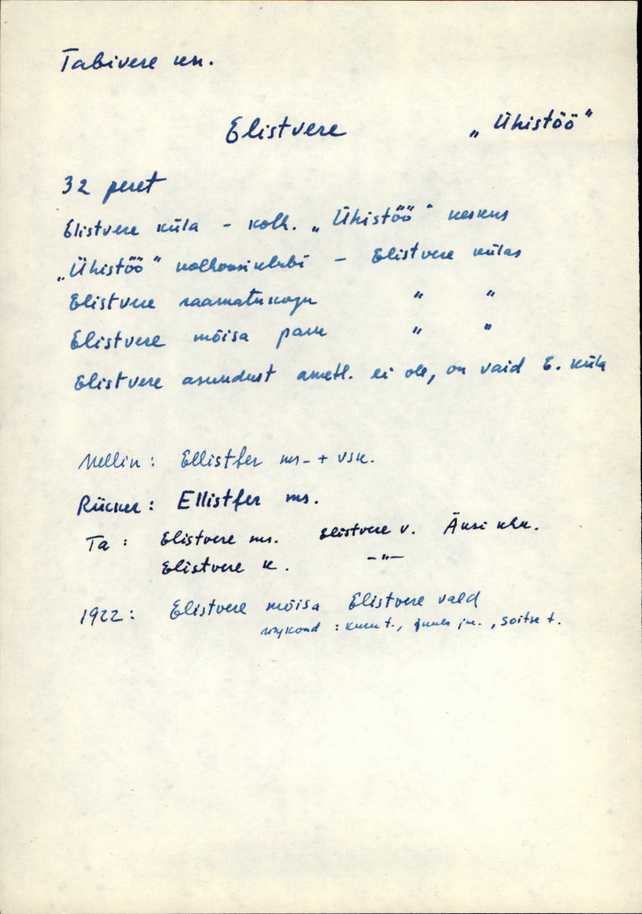 Tabivere kn.
Elistvere „Ühistöö"
32 peret
Elistvere küla - kolh. „Ühistöö" keskus
„Ühistöö" kolhoosiklubi - Elistvere külas
Elistvere raamatukogu " "
Elistvere mõisa park " "
Elistvere asundust ametl. ei ole, on vaid E. küla
Mellin: Ellistfer ms- + vsk.
Rücker: Ellistfer ms.
Ta: Elistvere ms. Elistvere v. Äksi khk.
Elistvere k. -"-
1922: Elistvere mõisa Elistvere vald
: t., , Soitse t.